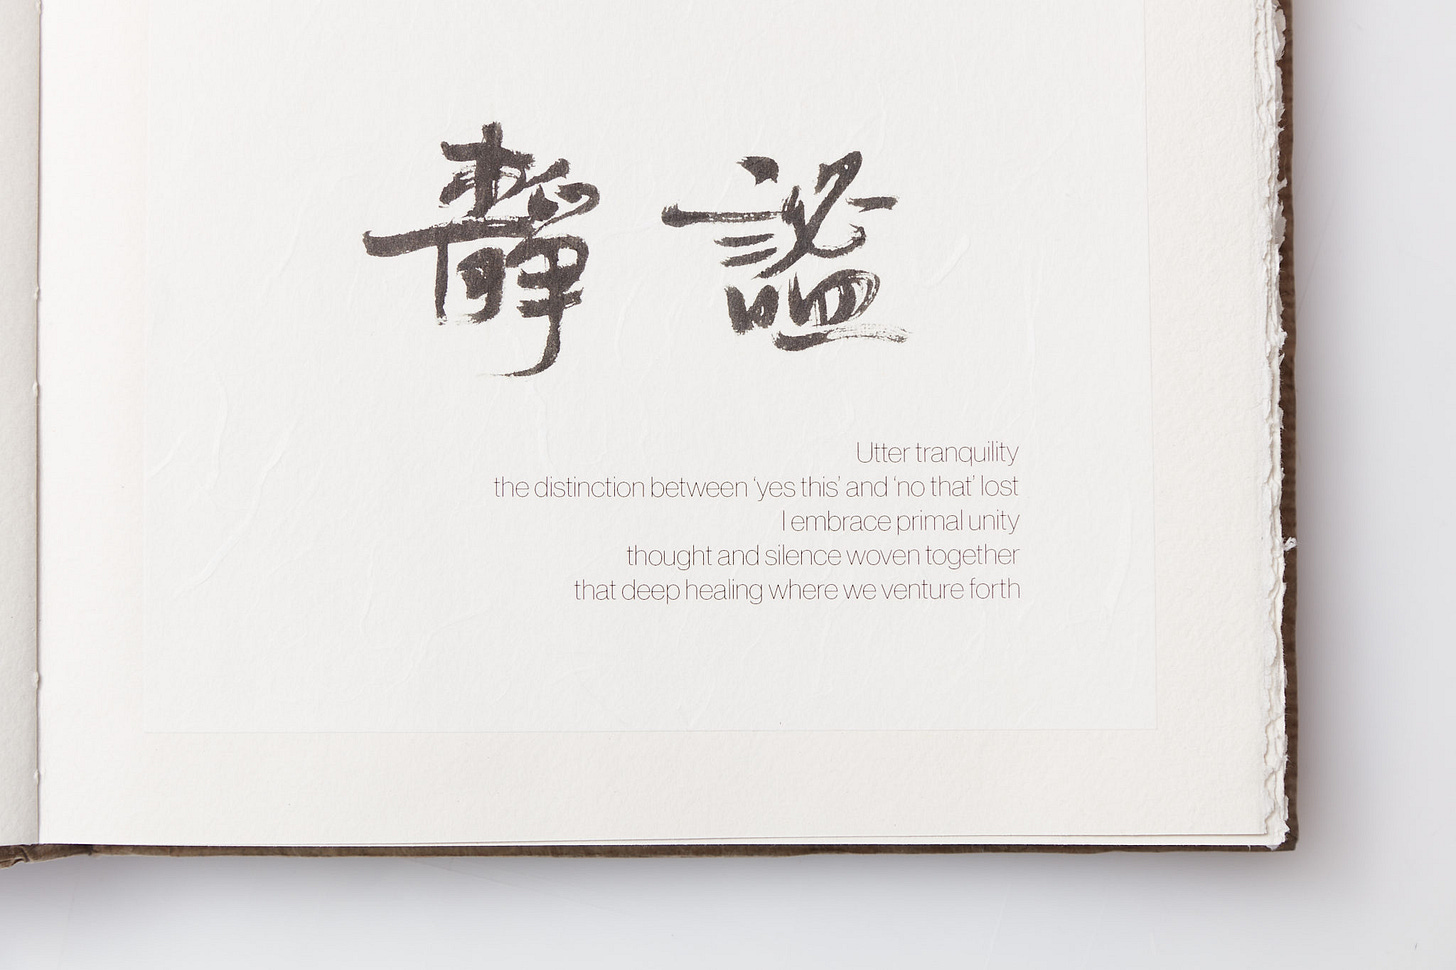 靜謐
Utter tranquility
the distinction between ‘yes this’ and ‘no that’ lost
I embrace primal unity
thought and silence woven together
that deep healing where we venture forth